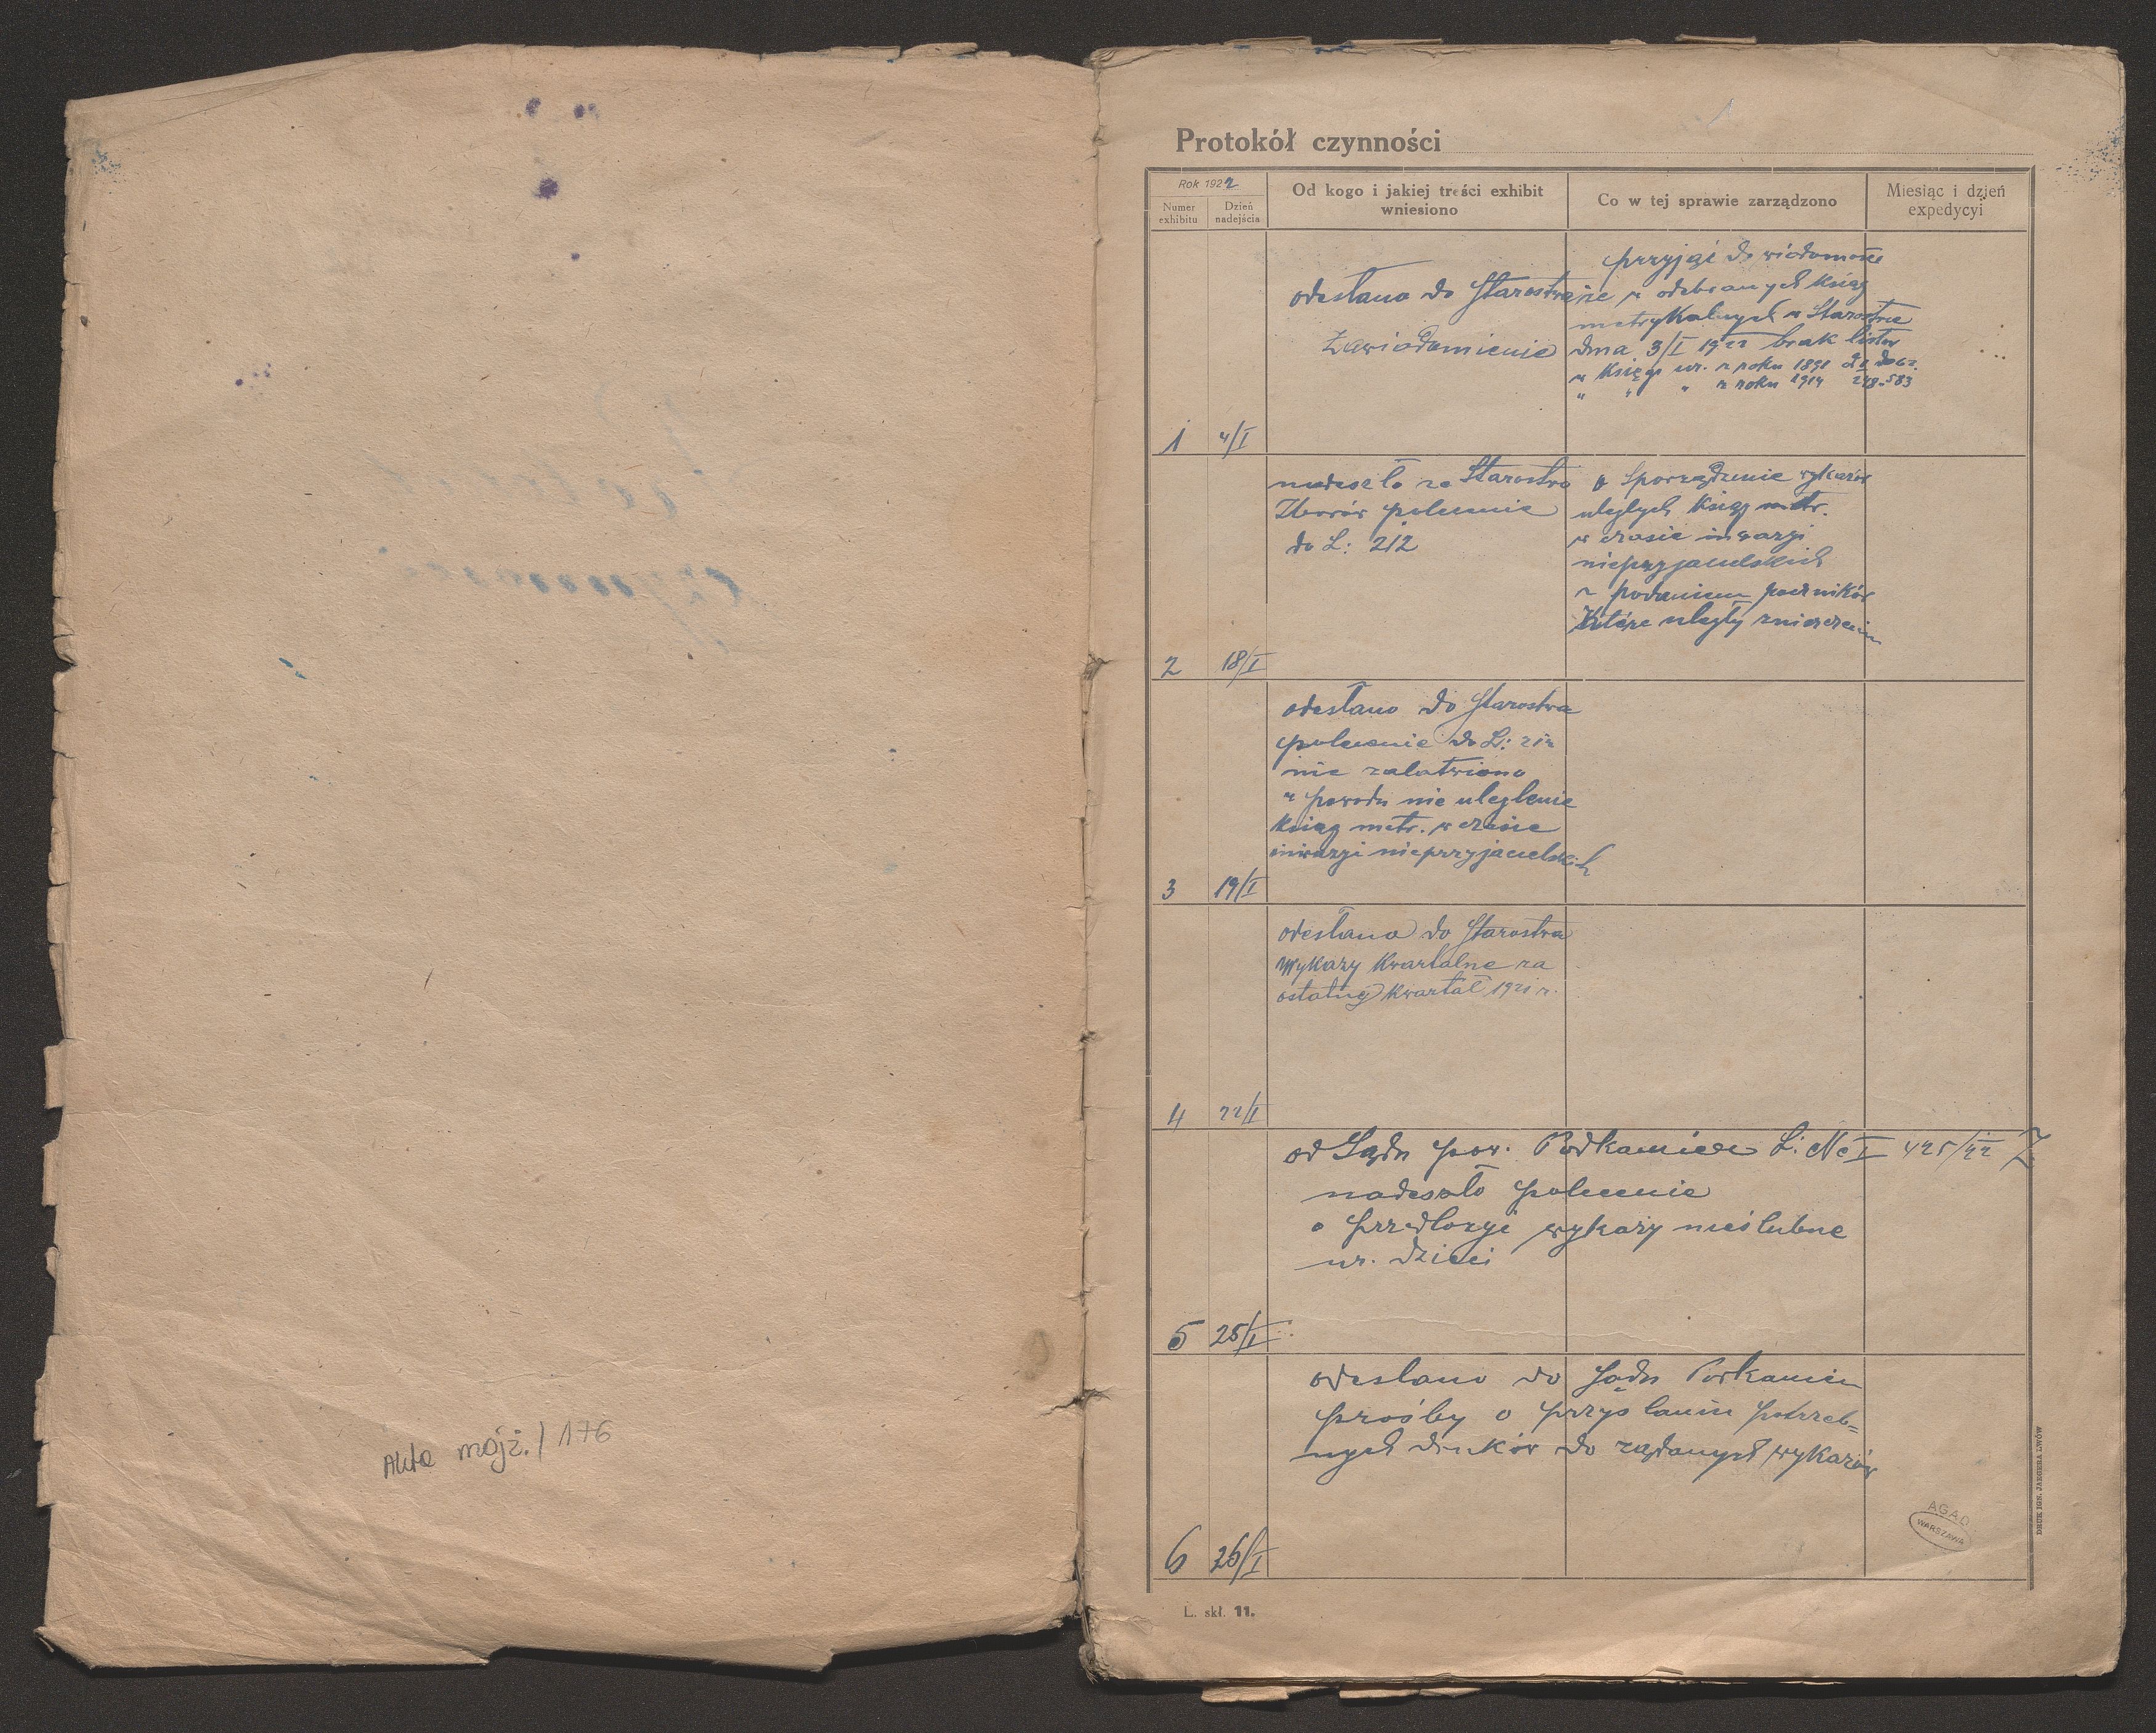 Akta mojż. / 176
1
Protokół czynności
Rok 1922
Numer exhibitu
Dzień nadejścia
Od kogo i jakiej treści exhibit wniesiono
Co w tej sprawie zarządzono
Miesiąc i dzień expedycyi
1
4/I
odesłano do Starostwa
Zawiadomienie
przyjąć do wiadomości
że w odebranych ksiąg
metrykalnych w Starostwie
dnia 3/I 1922 brak listów
w księge ur. z roku 1891
" " " z roku 1914 248-583
2
18/I
nadeszło ze Starostwa
Zborów polecenie
do L: 212
o sporządzenie wykazów
uległych ksiąg metr.
w czasie inwazyi
nieprzyjacielskich
z podaniem roczników
Które uległy zniszczeniu
3
19/I
odesłano do Starostwa
polecenie do L: 212
nie załatwiono
z powodu nie uleglenie
ksiąg metr. w czasie
inwazyi nieprzyjacielskich
4
22/I
odesłano do Starostwa
Wykazy kwartalne za
ostatny kwartał 1921 r.
5
25/I
od Sądu pow. Podkamień L: Nc I 425/22
nadeszło polecenie
o przedłozyć wykazy nieślubne
ur. dzieci
6
26/I
odesłano do Sądu Podkamien
prośby o przysłaniu potrzeb=
nych druków do rządanych wykazów
AGAD
WARSZAWA
DRUK IGN. JAEGERA LWÓW
L. skł. 11.